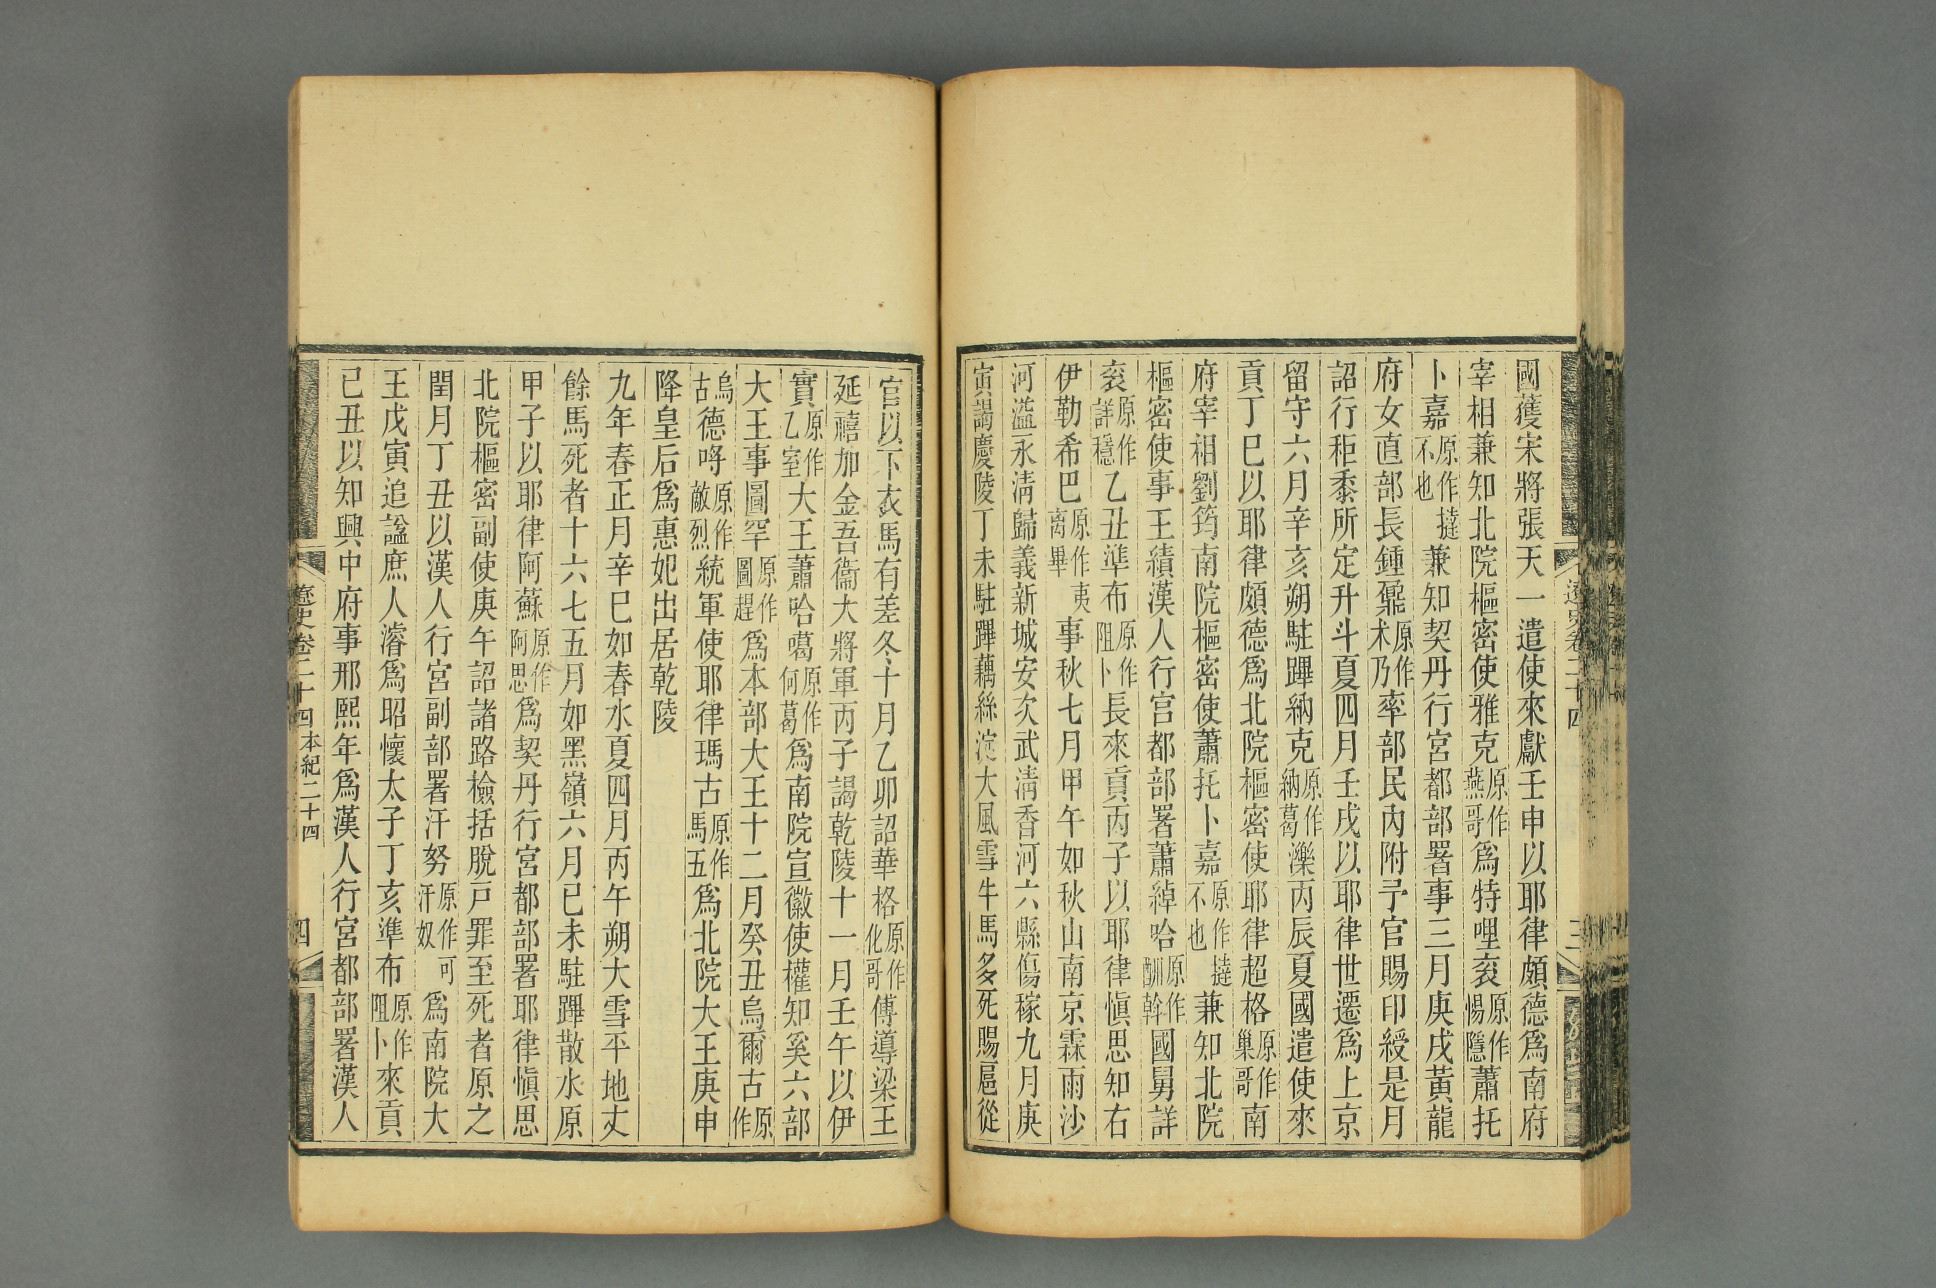 國獲宋將張天一遣使來獻壬申以耶律頗德爲南府
宰相兼知北院樞密使雅克原作燕哥爲特哩袞原作惕隱蕭托
卜嘉原作撻不也兼知契丹行宮都部署事三月庚戌黃龍
府女直部長鍾鼐原作术乃率部民內附予官賜印綬是月
詔行秬黍所定升斗夏四月壬戌以耶律世遷爲上京
留守六月辛亥朔駐蹕納克原作納葛濼丙辰夏國遣使來
貢丁巳以耶律頗德爲北院樞密使耶律超格原作巢哥南
府宰相劉筠南院樞密使蕭托卜嘉原作撻不也兼知北院
樞密使事王績漢人行宮都部署蕭綽哈原作酬斡國舅詳
袞原作詳穩乙丑準布原作阻卜長來貢丙子以耶律愼思知右
伊勒希巴原作夷离畢事秋七月甲午如秋山南京霖雨沙
河溢永淸歸義新城安次武淸香河六縣傷稼九月庚
寅謁慶陵丁未駐蹕藕絲淀大風雪牛馬多死賜扈從
遼史卷二十四
三
官以下衣馬有差冬十月乙卯詔華格原作化哥傅導梁王
延禧加金吾衞大將軍丙子謁乾陵十一月壬午以伊
實原作乙室大王蕭哈噶原作何葛爲南院宣徽使權知奚六部
大王事圖罕原作圖趕爲本部大王十二月癸丑烏爾古原作
烏古德哷原作敵烈統軍使耶律瑪古原作馬五爲北院大王庚申
降皇后爲惠妃出居乾陵
九年春正月辛巳如春水夏四月丙午朔大雪平地丈
餘馬死者十六七五月如黑嶺六月己未駐蹕散水原
甲子以耶律阿蘇原作阿思爲契丹行宮都部署耶律愼思
北院樞密副使庚午詔諸路檢括脫戸罪至死者原之
閏月丁丑以漢人行宮副部署汗努原作可汗奴爲南院大
王戊寅追諡庶人濬爲昭懷太子丁亥準布原作阻卜來貢
己丑以知興中府事邢熙年爲漢人行宮都部署漢人
遼史卷二十四 本紀二十四
四